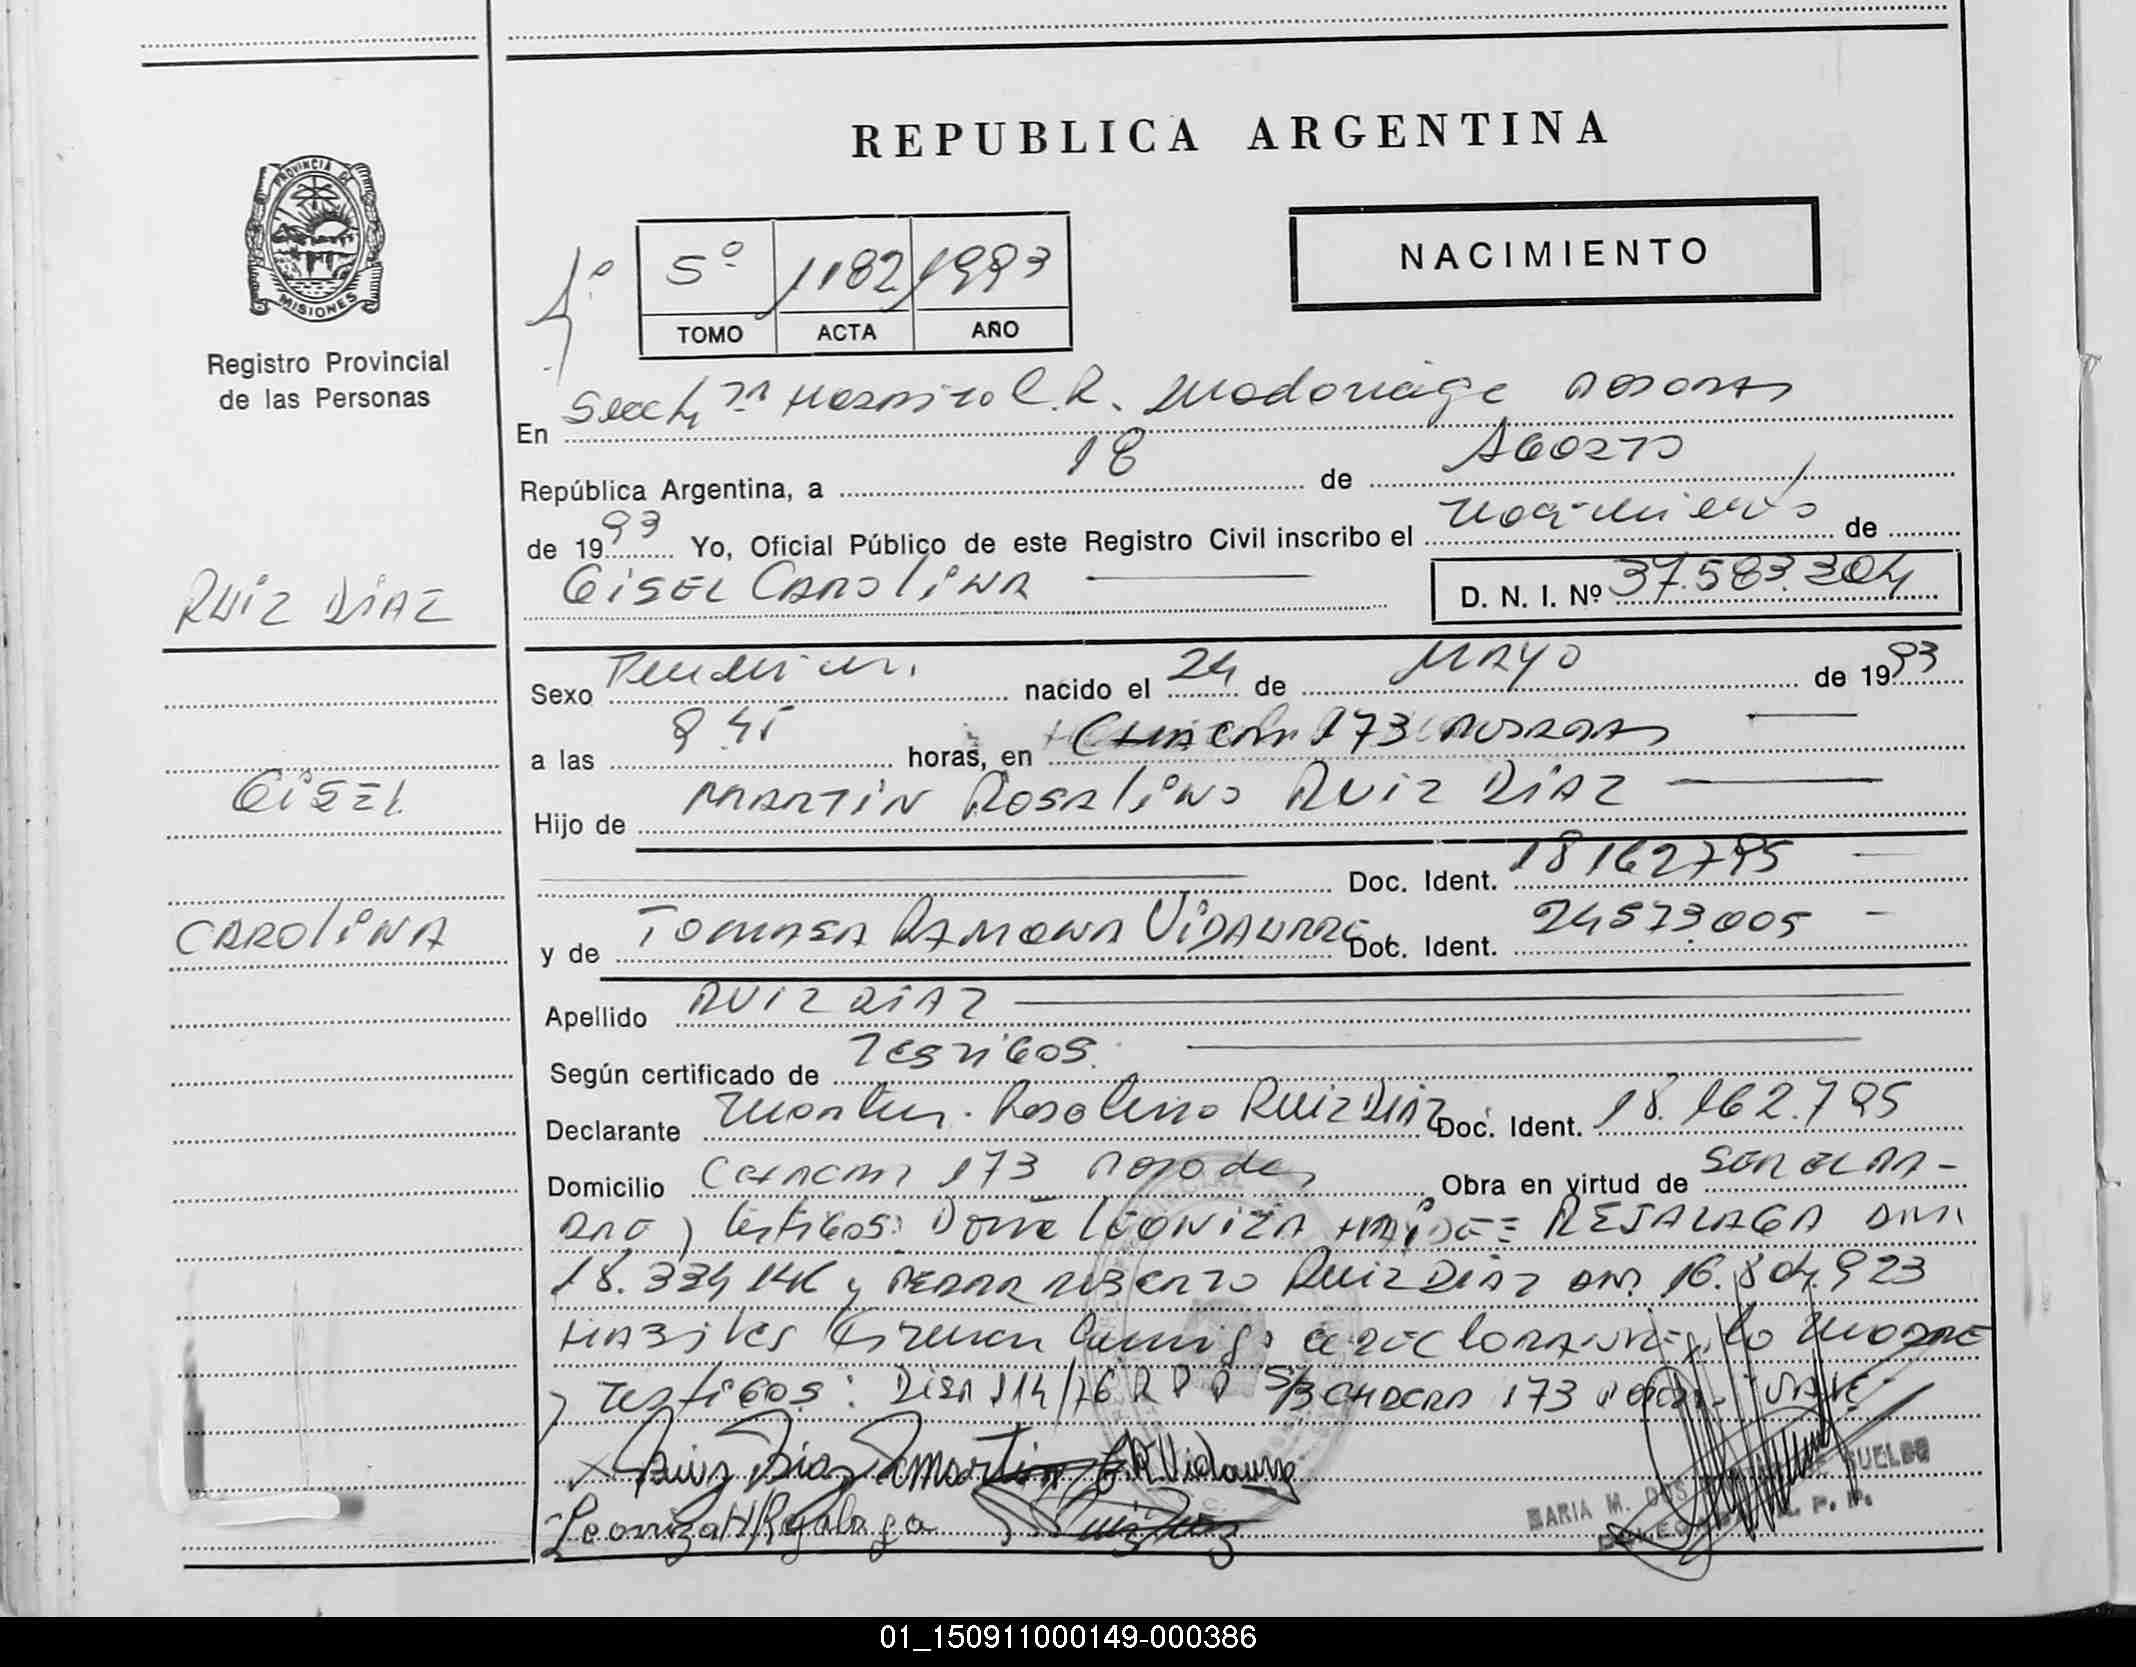 PROVINCIA DE
MISIONES
Registro Provincial
de las Personas
REPUBLICA ARGENTINA
NACIMIENTO
5º 1182 1993
TOMO ACTA AÑO
En Hospital R. Madariaga Posadas
República Argentina, a 18 de Agosto
de 1993 Yo, Oficial Público de este Registro Civil inscribo el nacimiento de
GISEL CAROLINA D. N. I. Nº 37.583.304
RUIZ DIAZ
GISEL
CAROLINA
Sexo Femenin. nacido el 24 de MAYO de 1993
a las 8 45 horas, en 173 POSADAS
Hijo de MARTIN ROSALINO RUIZ DIAZ
Doc. Ident. 18162795
y de TOMASA RAMONA VIDAURRE Doc. Ident. 24573005
Apellido RUIZ DIAZ
Según certificado de TESTIGOS.
Declarante Martin Rosalino RUIZ DIAZ Doc. Ident. 18.162.795
Domicilio 173 Posadas Obra en virtud de SER EL PA-
DRE y testigos: Doña LEONIZA HAIDEE REGALAGA DNI
18.334.146 y RUIZ DIAZ DNI 16.804.923
HABILES firman conmigo el DECLARANTE, la MADRE
y testigos: DISP 114/76 R P P S/B 173 VALE
Ruiz Diaz Martin R Vidaurre
Leoniza H Regalaga Ruiz Diaz
MARIA M. DOS
R. P. P.
01_150911000149-000386